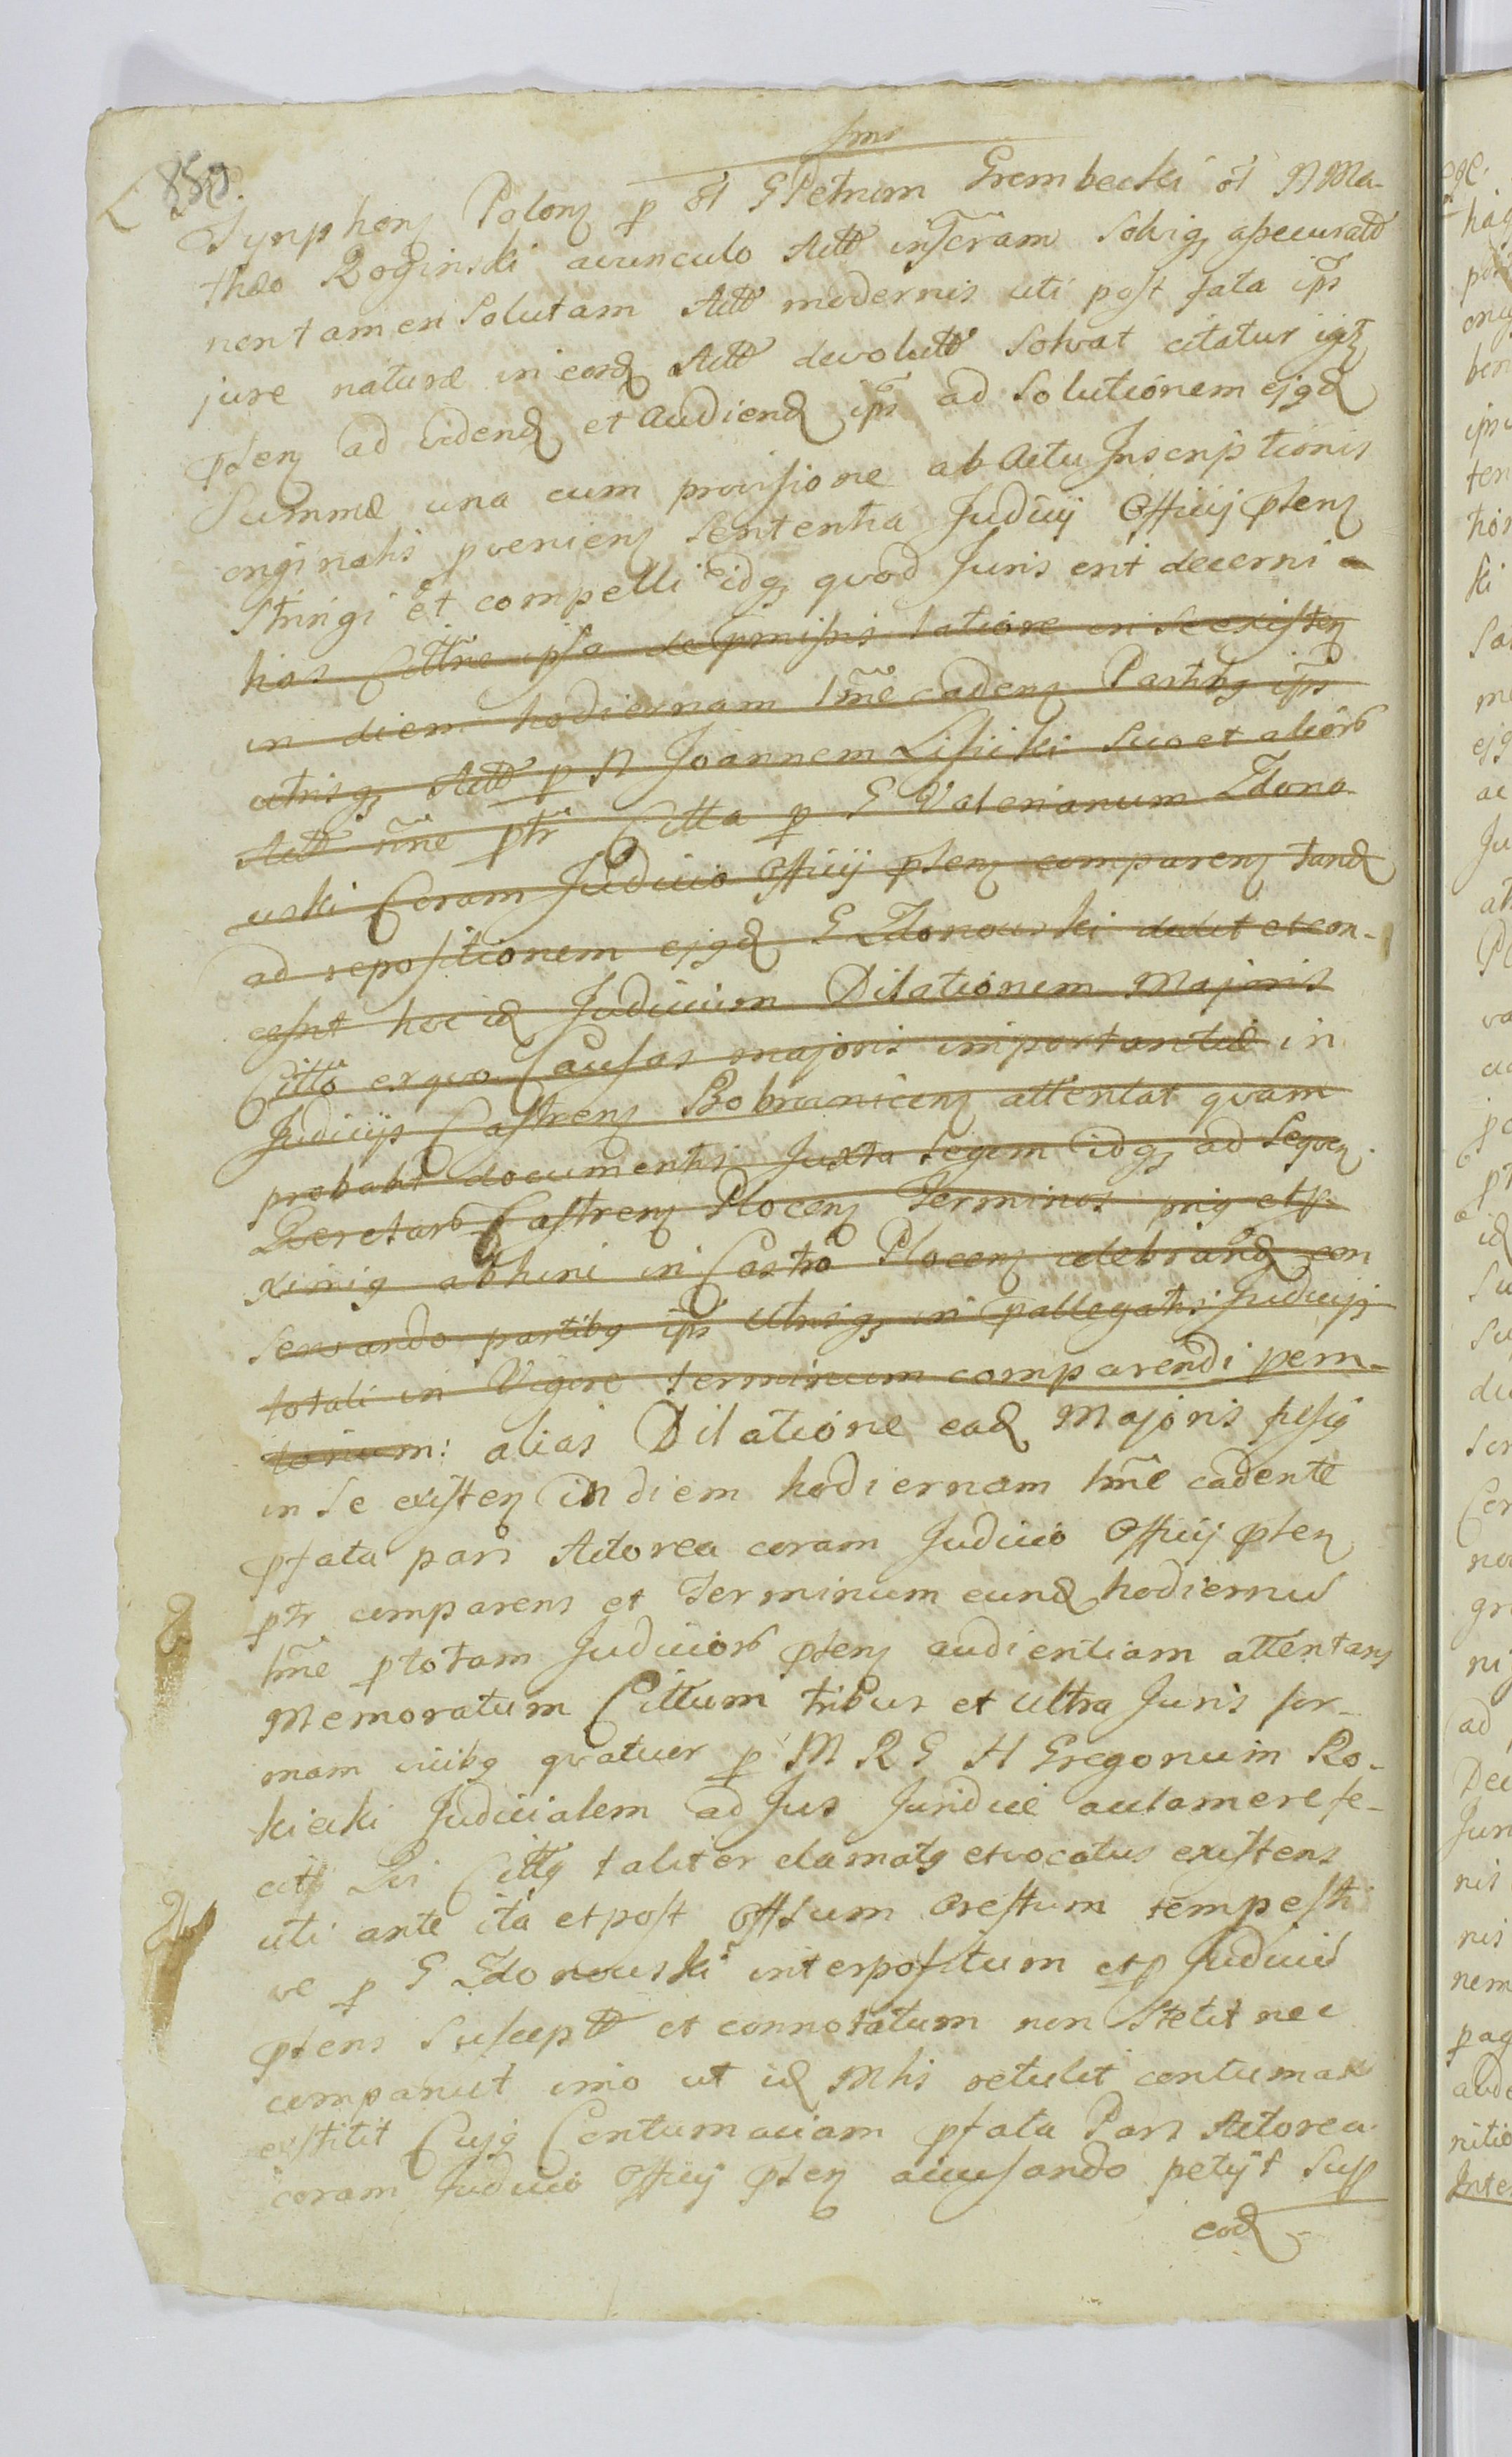 850.
Tynphonz Polonz p ōl G Petrum Grembecki ōl N Ma-
thæo Roginski avunculo Actt inscram solviqz assecuratt
non tamen solutam Actt modernis uti post fata ips
jure naturæ in eosd Actt devolutt solvat citatur igt
pſenz ad videnđ et Audienđ ips ad solutionem ejqđ
Summæ una cum provisione ab Actu Inscriptionis
originalis pveniens sententia Judicij Officij pſenz
stringi et compelli idqz quod Juris erit decerni
has Cittne ipsa de pmissis latione in se existen
in diem hodiernam tmē cadenz Partibq ips
utrisqz Actt p N Joannem Lisicki suo et alior
Actt nne ptr Citta p G Valerianum Zdono
wski Coram Judicio Officij pſenz comparenz tand
ad repositionem ejqđ G Zdonowski dedit et con-
cessit hoc id Judicium Dilationem Majoris
Citto ex quo Causas majoris importantiæ in
Judicijs Castrenz Bobrownicenz attentat quam
probabit documentis Juxta legem idqz ad Sequen.
Decretor Castrenz Plocenz Terminos priq et p
ximiq abhinc in Castro Plocenz celebrand con
servando partibq ips utrisqz in pallegatis Judicijs
totali in Vigore terminum comparendi perm-
torium: alias Dilatione ead Majoris
in se existen in diem hodiernam tmē cadente
pfata pars Actorea coram Judicio Officij pſen
ptr comparens et Terminum eund hodiernū
tmē p totam Judicior pſenz audientiam attentans
Memoratum Cittum tribus et ultra Juris for-
mam vicibq quatuor p M R G H Gregorium Ro-
kicki Judicialem ad Jus Juridice acclamare fe-
cit Qui Cittq taliter clamatq et vocatus existens
uti ante ita et post Offsum Arestum tempesti
ve p G Zdonowski interpositum et p Judiciū
pſens suscept et connotatum non stetit nec
comparuit imo ut id Mlis retulit contumax
extitit Cujq Contumaciam pfata Pars Actorea
coram Judicio Officij pſen accusando petijt sup
eod